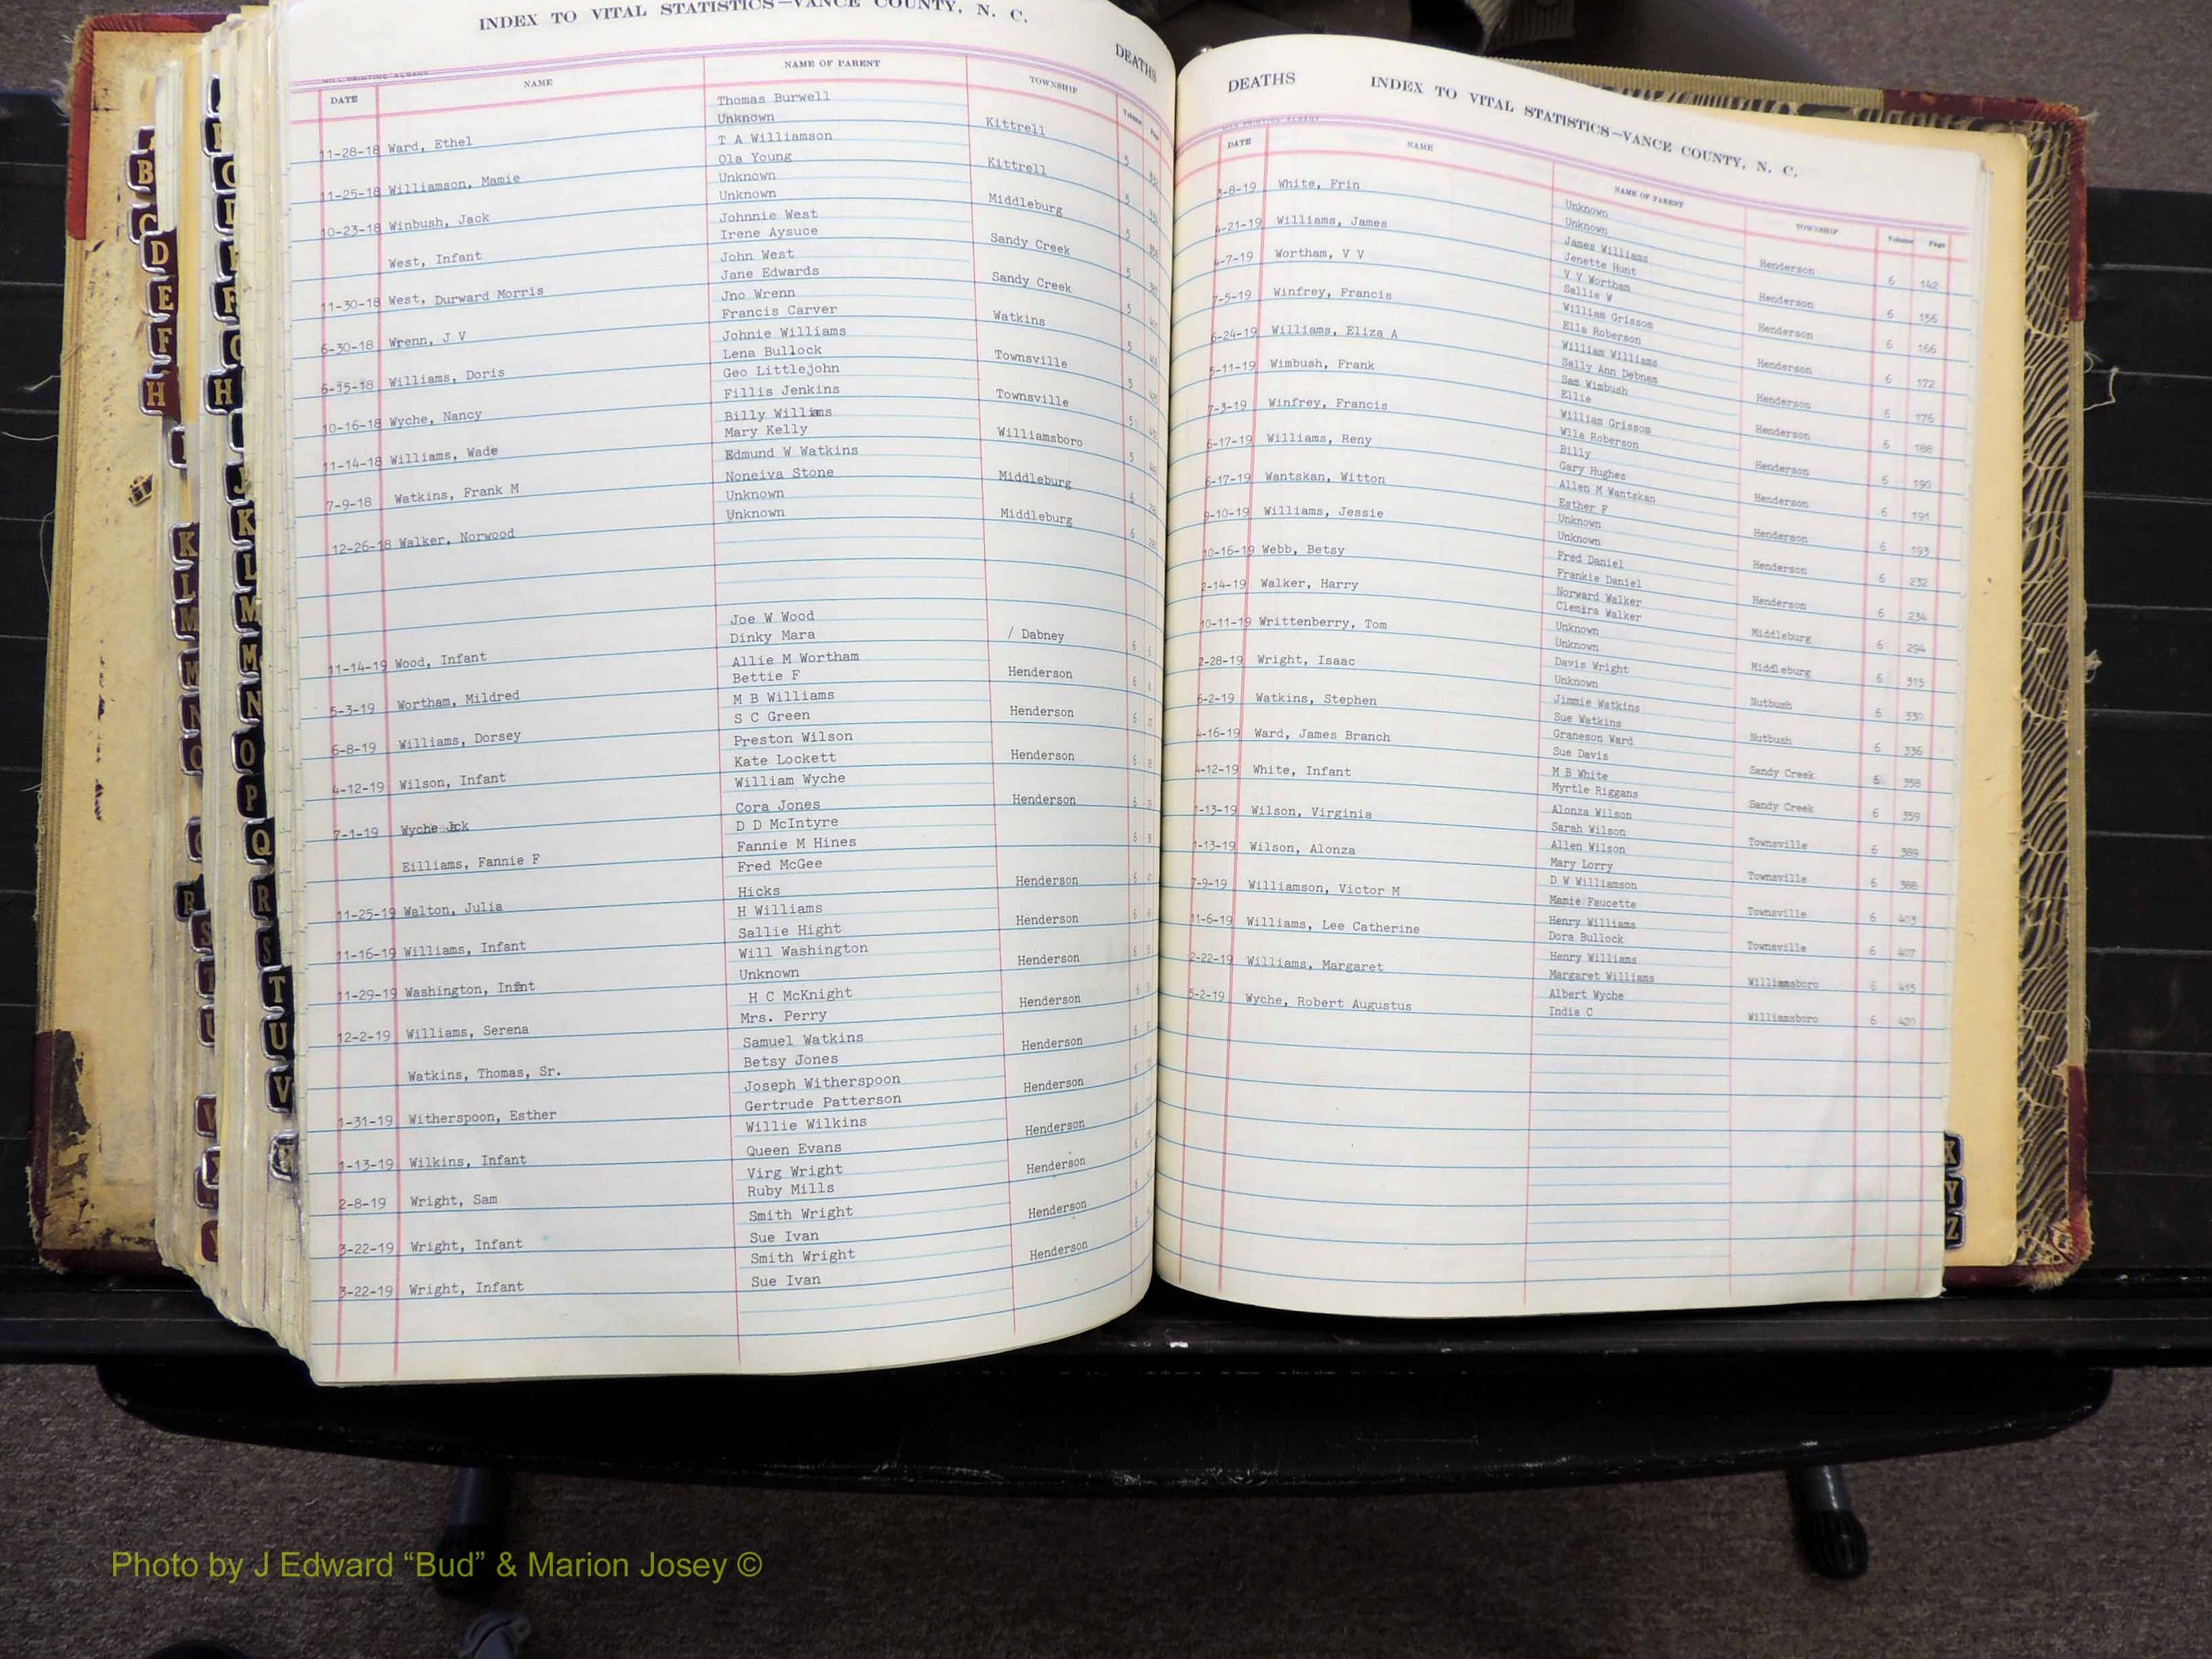 INDEX TO VITAL STATISTICS—VANCE COUNTY, N. C.
DEATHS
DATE NAME NAME OF PARENT TOWNSHIP Volume Page
Thomas Burwell
11-28-18 Ward, Ethel Unknown Kittrell 5
T A Williamson
11-25-18 Williamson, Mamie Ola Young Kittrell 5
Unknown
10-23-18 Winbush, Jack Unknown Middleburg 5
Johnnie West
West, Infant Irene Aysuce Sandy Creek 5
John West
11-30-18 West, Durward Morris Jane Edwards Sandy Creek 5
Jno Wrenn
6-30-18 Wrenn, J V Francis Carver Watkins 5
Johnie Williams
6-15-18 Williams, Doris Lena Bullock Townsville 5
Geo Littlejohn
10-16-18 Wyche, Nancy Fillis Jenkins Townsville 5
Billy Williams
11-14-18 Williams, Wade Mary Kelly Williamsboro 5
Edmund W Watkins
7-9-18 Watkins, Frank M Noneiva Stone Middleburg 6
Unknown
12-26-18 Walker, Norwood Unknown Middleburg 6
Joe W Wood
11-14-19 Wood, Infant Dinky Mara / Dabney 6
Allie M Wortham
5-3-19 Wortham, Mildred Bettie F Henderson 6
M B Williams
6-8-19 Williams, Dorsey S C Green Henderson 6
Preston Wilson
4-12-19 Wilson, Infant Kate Lockett Henderson 6
William Wyche
7-1-19 Wyche Jack Cora Jones Henderson 6
D D McIntyre
Eilliams, Fannie F Fannie M Hines 6
Fred McGee
11-25-19 Walton, Julia Hicks Henderson 6
H Williams
11-16-19 Williams, Infant Sallie Hight Henderson 6
Will Washington
11-29-19 Washington, Infant Unknown Henderson 6
H C McKnight
12-2-19 Williams, Serena Mrs. Perry Henderson 6
Samuel Watkins
Watkins, Thomas, Sr. Betsy Jones Henderson 6
Joseph Witherspoon
1-31-19 Witherspoon, Esther Gertrude Patterson Henderson 6
Willie Wilkins
1-13-19 Wilkins, Infant Queen Evans Henderson 6
Virg Wright
2-8-19 Wright, Sam Ruby Mills Henderson 6
Smith Wright
3-22-19 Wright, Infant Sue Ivan Henderson 6
Smith Wright
3-22-19 Wright, Infant Sue Ivan Henderson
DEATHS INDEX TO VITAL STATISTICS—VANCE COUNTY, N. C.
DATE NAME NAME OF PARENT TOWNSHIP Volume Page
Unknown
-8-19 White, Frin Unknown Henderson 6 142
James Williams
4-21-19 Williams, James Jenette Hunt Henderson 6 156
V V Wortham
4-7-19 Wortham, V V Sallie W Henderson 6 166
William Grissom
7-5-19 Winfrey, Francis Ella Roberson Henderson 6 172
William Williams
6-24-19 Williams, Eliza A Sally Ann Debnam Henderson 6 176
Sam Wimbush
5-11-19 Wimbush, Frank Ellie Henderson 6 188
William Grissom
7-3-19 Winfrey, Francis Wlla Roberson Henderson 6 190
Billy
6-17-19 Williams, Reny Gary Hughes Henderson 6 191
Allen M Wantskan
6-17-19 Wantskan, Witton Esther F Henderson 6 193
Unknown
9-10-19 Williams, Jessie Unknown Henderson 6 232
Fred Daniel
10-16-19 Webb, Betsy Frankie Daniel Henderson 6 234
Norward Walker
2-14-19 Walker, Harry Clemira Walker Middleburg 6 294
Unknown
10-11-19 Writtenberry, Tom Unknown Middleburg 6 315
Davis Wright
2-28-19 Wright, Isaac Unknown Nutbush 6 330
Jimmie Watkins
6-2-19 Watkins, Stephen Sue Watkins Nutbush 6 336
Graneson Ward
4-16-19 Ward, James Branch Sue Davis Sandy Creek 6 358
M B White
4-12-19 White, Infant Myrtle Riggans Sandy Creek 6 359
Alonza Wilson
1-13-19 Wilson, Virginia Sarah Wilson Townsville 6 389
Allen Wilson
1-13-19 Wilson, Alonza Mary Lorry Townsville 6 388
D W Williamson
7-9-19 Williamson, Victor M Mamie Faucette Townsville 6 403
Henry Williams
11-6-19 Williams, Lee Catherine Dora Bullock Townsville 6 407
Henry Williams
2-22-19 Williams, Margaret Margaret Williams Williamsboro 6 415
Albert Wyche
5-2-19 Wyche, Robert Augustus India C Williamsboro 6 420
B
C
D
E
F
H
K
L
M
M
N
O
R
S
T
U
V
H
K
L
M
M
N
O
P
Q
R
S
T
U
V
X
Y
Z
Photo by J Edward “Bud” & Marion Josey ©